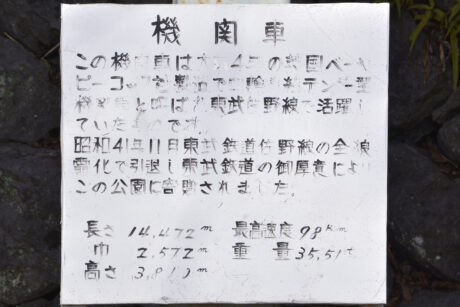 機関車
この機関車は大 4 の 国ベー
ピーコック 製 で 輪 テンダー型
機 と呼ばれ東武佐野線で活躍し
ていた です。
昭和41年11月東武鉄道佐野線の全線
電化で引退し東武鉄道の御厚責により
この公園に寄贈されました。
長さ 14,472m 最高速度 98km
巾 2,572m 重量 35,51t
高さ 3,81 m